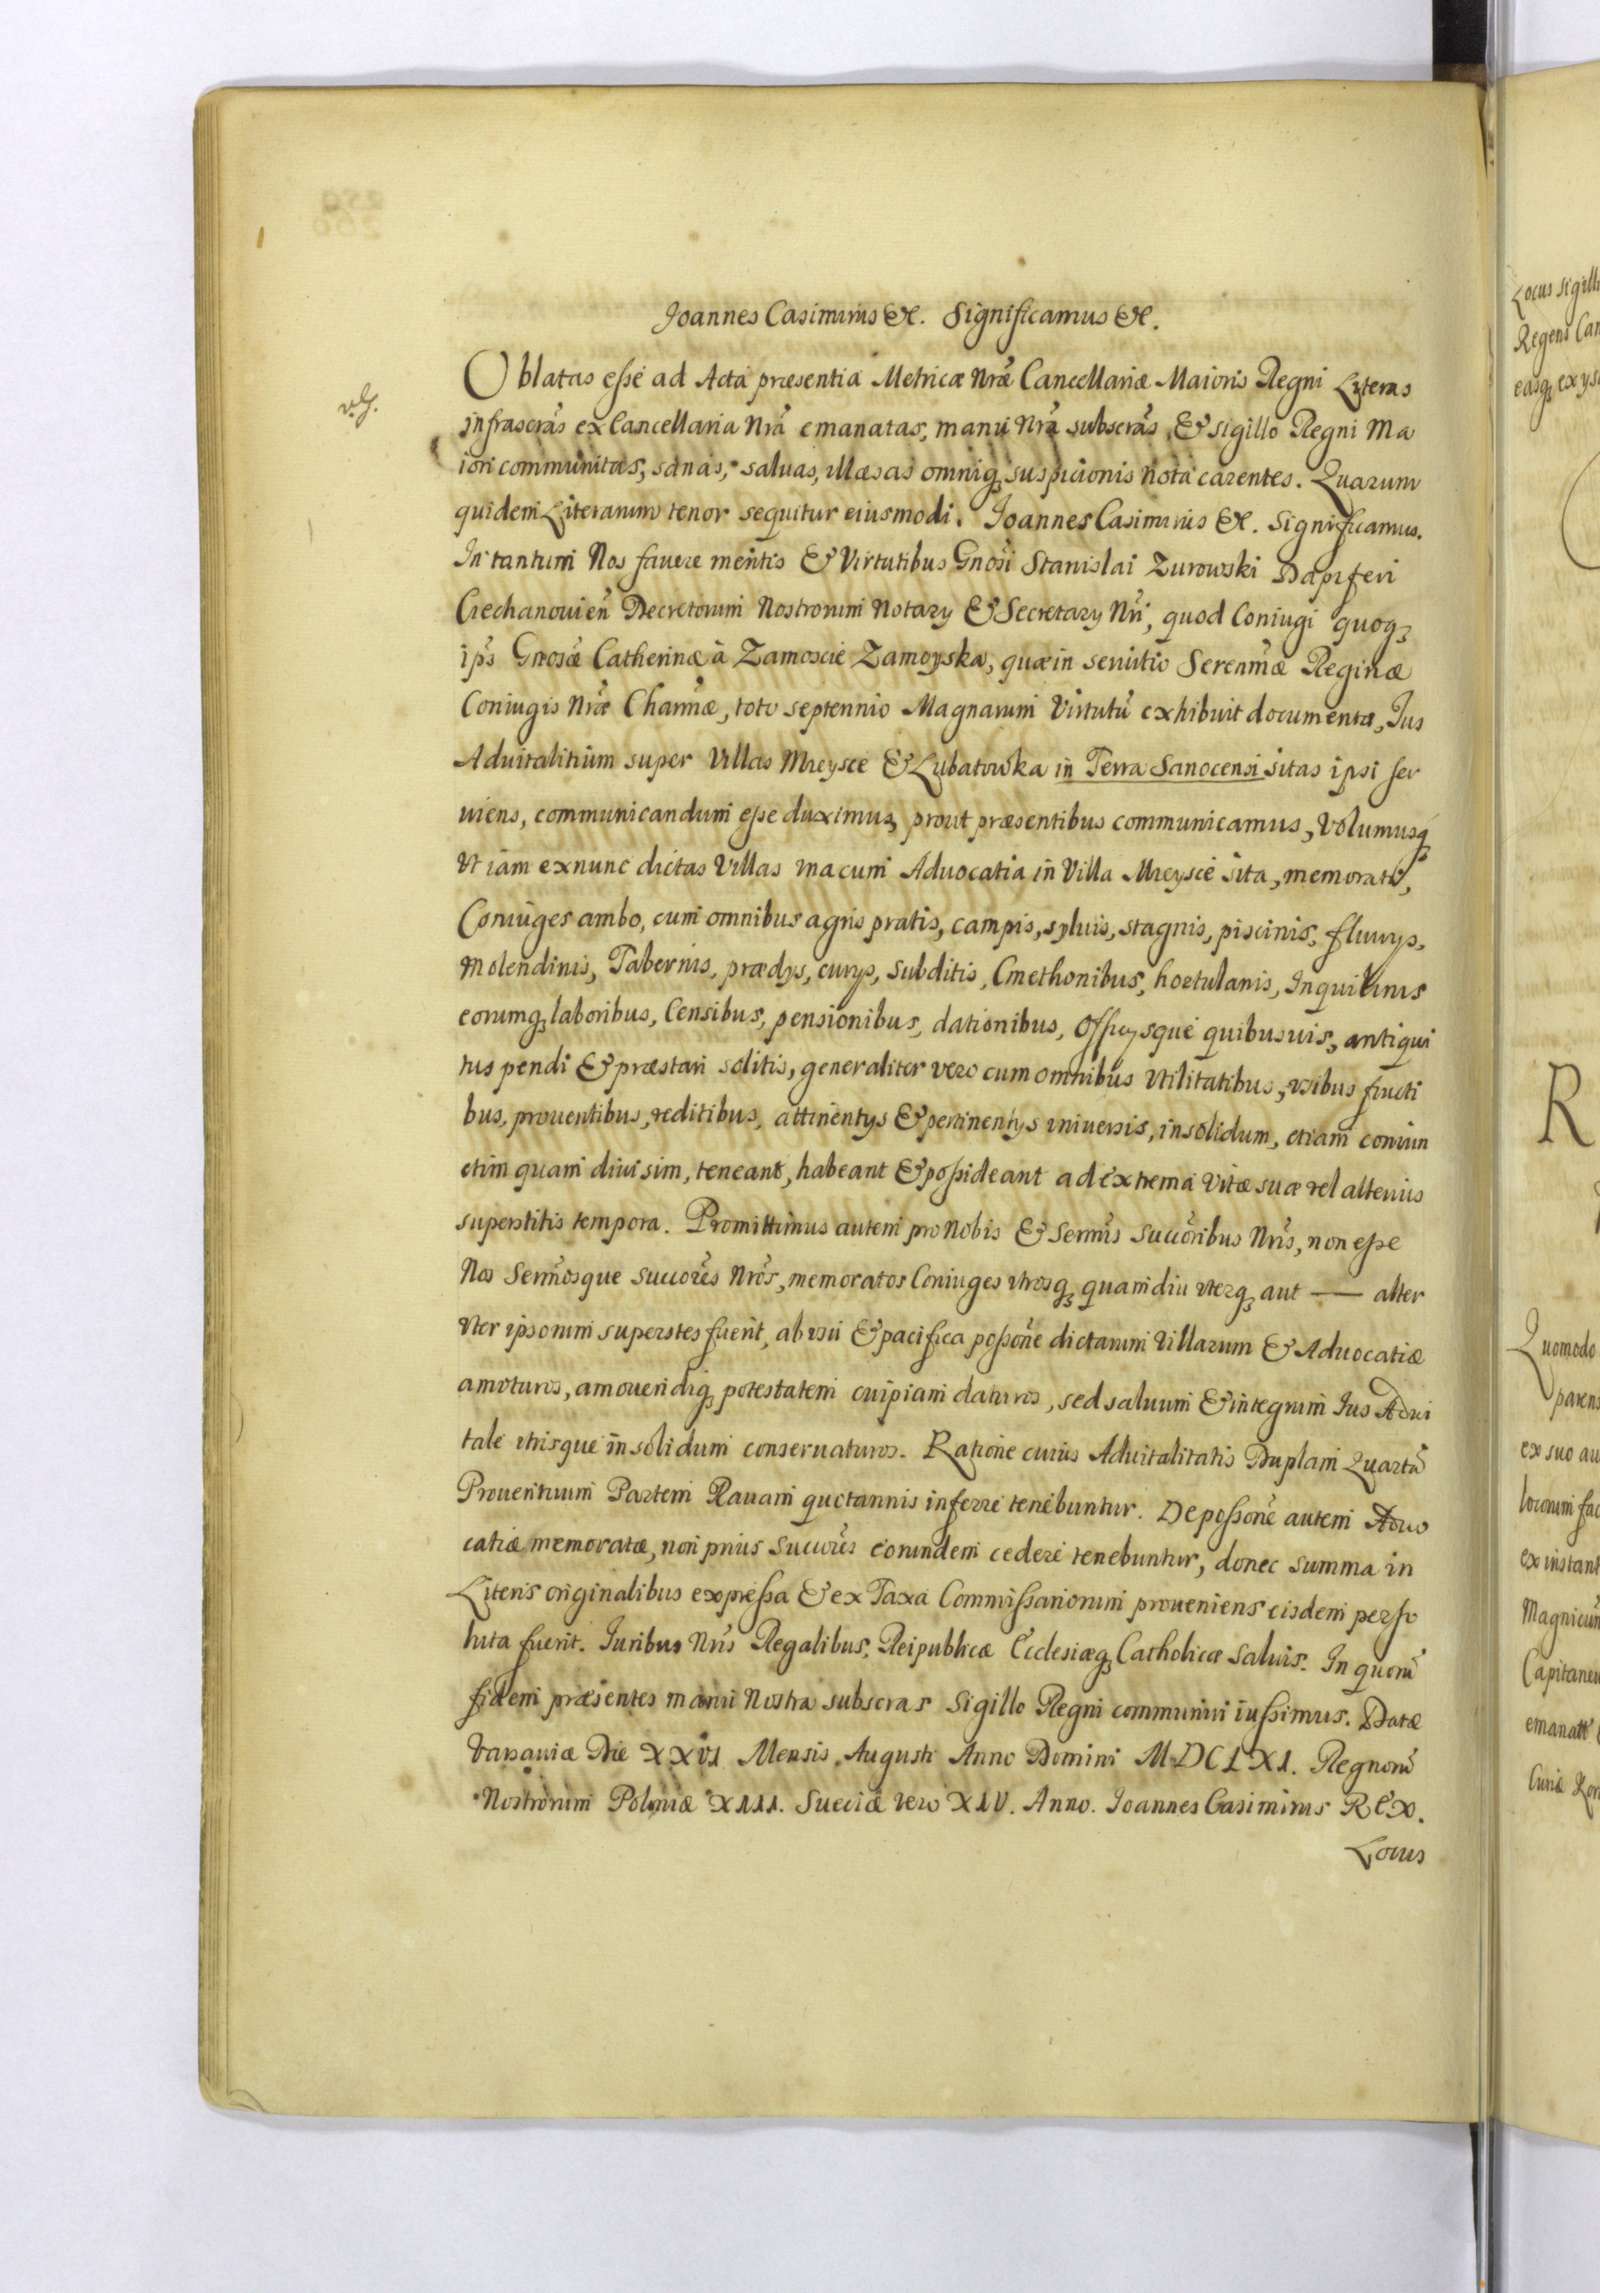 Joannes Casimirus &c. Significamus &c.
Oblatas esse ad Acta præsentia Metricæ Nræ Cancellariæ Maioris Regni Literas
infrascras ex Cancellaria Nra emanatas, manu Nra subscras, & sigillo Regni Ma
iori communitas, sanas, saluas, illæsas omniq suspicionis nota carentes. Quarum
quidem Literarum tenor sequitur eiusmodi. Joannes Casimirus &c. Significamus.
In tantum Nos fauere meritis & Virtutibus Gnosi Stanislai Zurowski Dapiferi
Ciechanouien Decretorum Nostrorum Notary & Secretary Nri, quod Coniugi quoq
ips Gnosæ Catherinæ à Zamoscie Zamoyska, quæ in seruitio Serenmæ Reginæ
Coniugis Nræ Charmæ, toto septennio Magnarum Virtutu exhibuit documenta, Jus
Aduitalitium super Villas Mieysce & Lubatowka in Terra Sanocensi sitas ipsi ser
uiens, communicandum esse duximus, prout præsentibus communicamus, Volumusq
Vt iam ex nunc dictas Villas vna cum Aduocatia in Villa Mieysce sita, memorati,
Coniuges ambo, cum omnibus agris pratis, campis, syluis, stagnis, piscinis, fluuys,
Molendinis, Tabernis, prædys, curys, subditis, Cmethonibus, hortulanis, Inquilinis
eorumq laboribus, Censibus, pensionibus, dationibus, Officysque quibusuis, antiqui
tus pendi & præstari solitis, generaliter vero cum omnibus Vtilitatibus, vsibus fructi
bus, prouentibus, reditibus, attinentys & pertinentys vniuersis, in solidum, etiam coniun
ctim quam diuisim, teneant, habeant & possideant ad extrema Vitæ suæ vel alterius
superstitis tempora. Promittimus autem pro Nobis & Sermis Succoribus Nris, non esse
Nos Sermosque Succores Nros, memoratos Coniuges vtrosq quamdiu vterq aut — alter
Vter ipsorum superstes fuerit, ab vsu & pacifica possone dictarum Villarum & Aduocatiæ
amoturos, amouendiq potestatem cuipiam daturos, sed saluum & integrum Jus Adui
tale vtrisque in solidum conseruaturos. Ratione cuius Aduitalitatis Duplam Quarta
Prouentuum Partem Rauam quotannis inferre tenebuntur. De possone autem Aduo
catiæ memoratæ, non prius Succores eorundem cedere tenebuntur, donec summa in
Literis originalibus expressa & ex Taxa Commissariorum proueniens eisdem perso
luta fuerit. Juribus Nris Regalibus, Reipublicæ Ecclesiæq Catholicæ saluis. In quoru
fidem præsentes manu Nostra subscras Sigillo Regni communiri iussimus. Datæ
Varsauiæ Die XXVI Mensis Augusti Anno Domini MDCLXI. Regnoru
Nostrorum Poloniæ XIII. Sueciæ vero XIV. Anno. Joannes Casimirus REX.
Locus